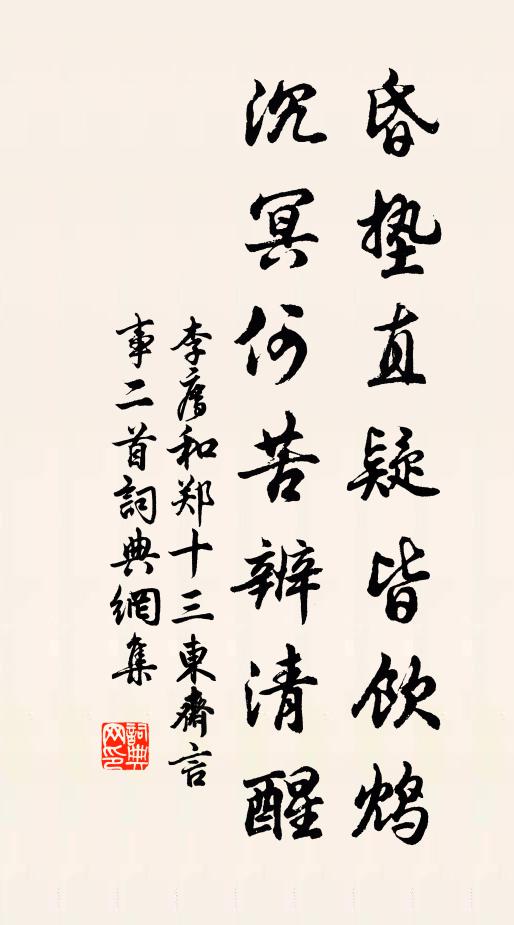 昏垫直疑皆飲鴆
沉冥何苦辨清醒
李廌和郑十三東齋言
事二首詞典網集
詞典
网印